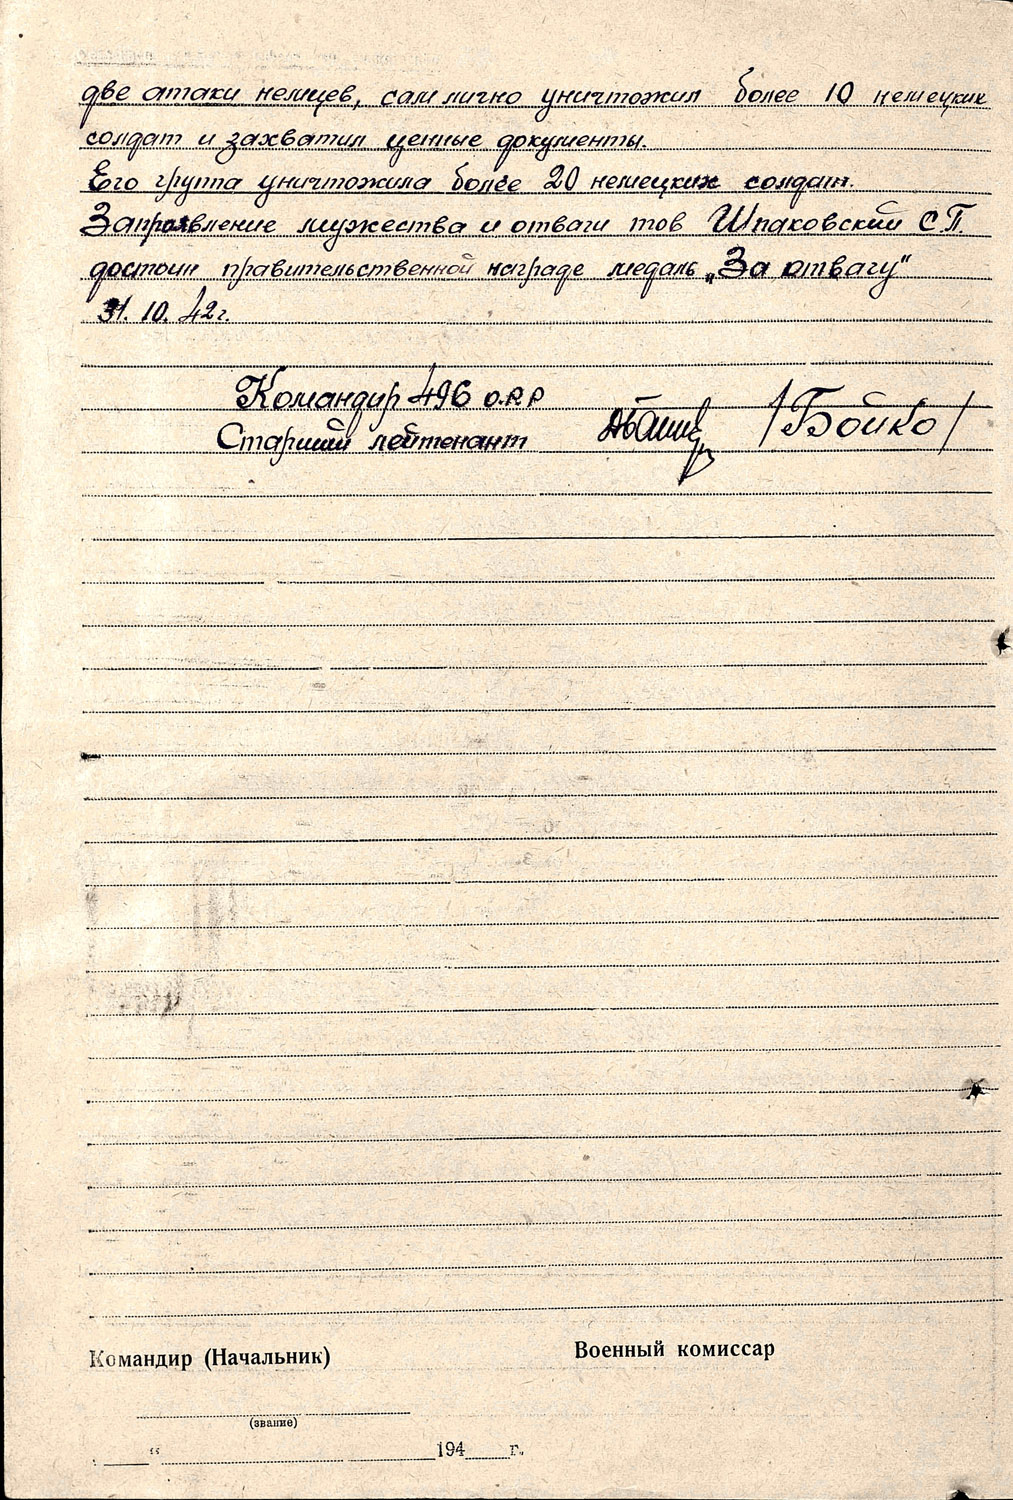 две атаки немцев, сам лично уничтожил более 10 немецких
солдат и захватил ценные документы.
Его группа уничтожила более 20 немецких солдат.
За проявление мужества и отваги тов Шпаковский С.П.
достоин правительственной награде медаль „За отвагу“
31. 10. 42г.
Командир 496 о.р.р
Старший лейтенант /Бойко/
Командир (Начальник) Военный комиссар
(звание)
“ 194 г.